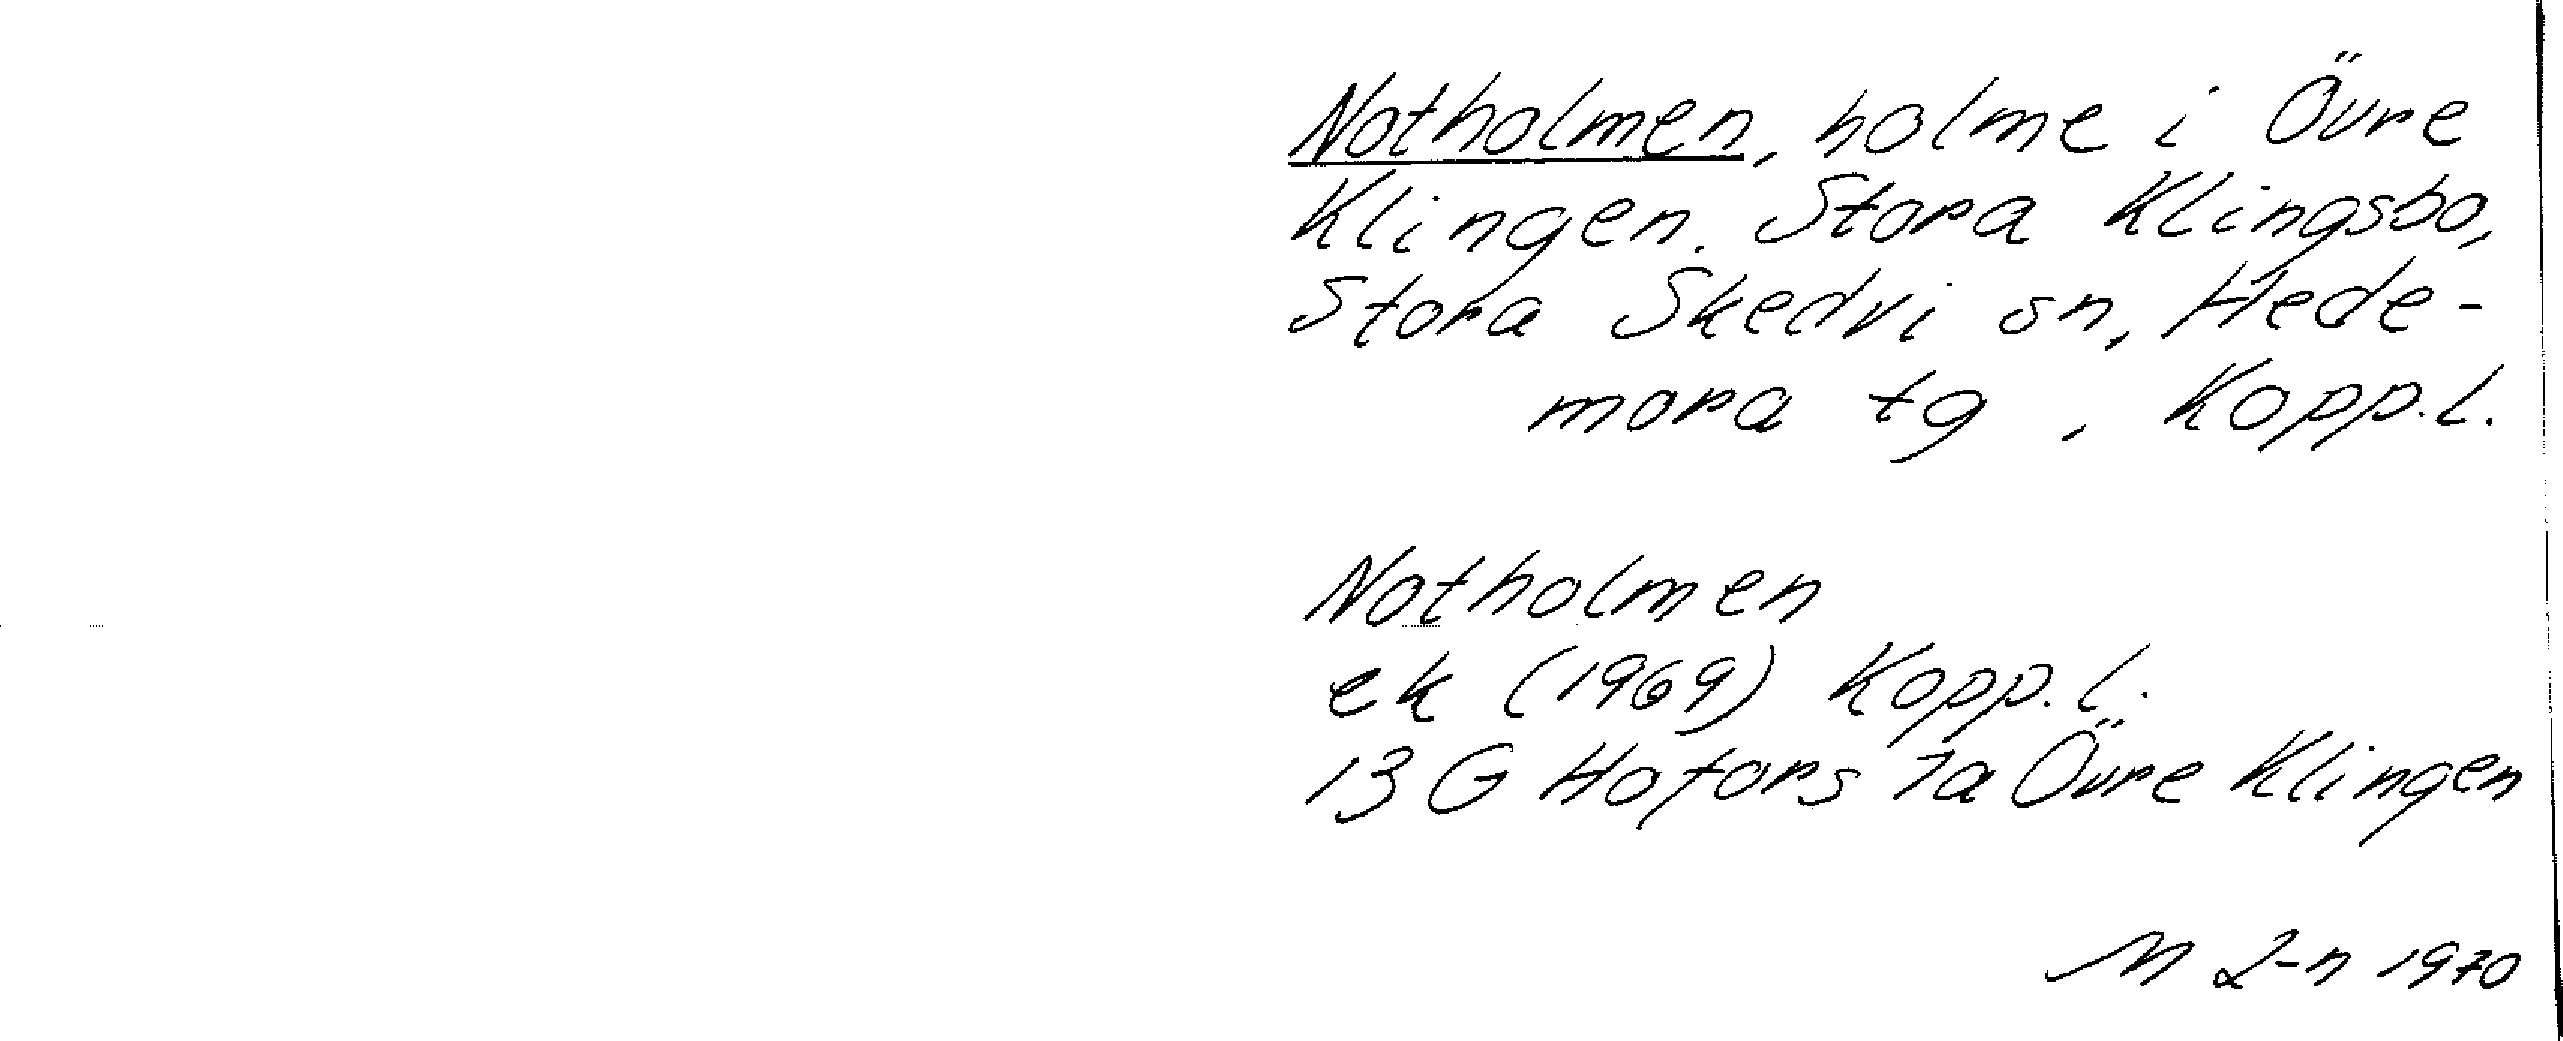 Notholmen, holme i Övre
Klingen. Stora Klingsbo,
Stora Skedvi sn, Hede-
mora tg, Kopp.l.
Notholmen
ek (1969) Kopp.l.
13 G Hofors 7a Övre Klingen
M L-n 1970